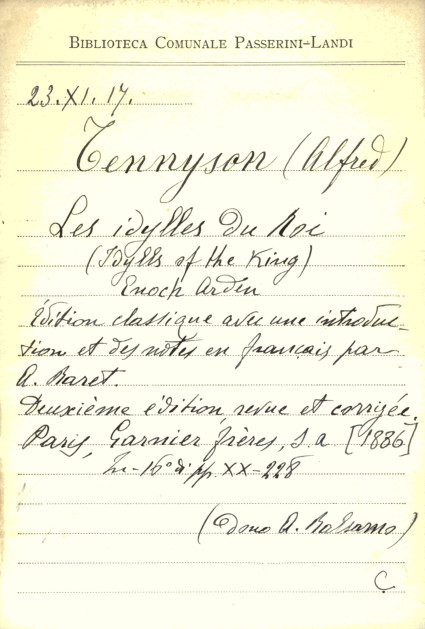 BIBLIOTECA COMUNALE PASSERINI-LANDI
23.XI.17.
Tennyson (Alfred)
Les idylles du Roi
(Idylls of the King)
Enoch Arden
Édition classique avec une introduc-
tion et des notes en français par
A. Baret.
Deuxième édition, revue et corrigée.
Paris, Garnier frères, s. a. [1886]
In-16° di pp. XX-228
(Dono A. Balsamo)
C